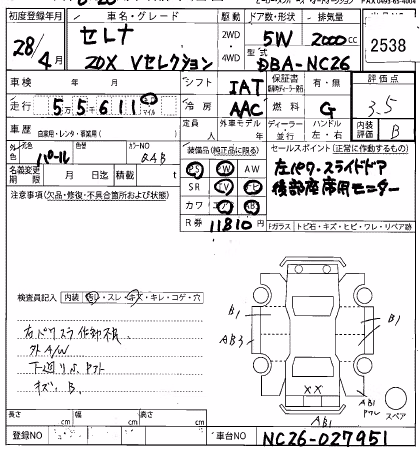 初度登録年月 車名・グレード 駆動 ドア数・形状 排気量
28/4月 セレナ 20X Vセレクション 2WD・4WD 5W 2000cc 2538
型式 DBA-NC26
車検 年 月 シフト IAT 保証書 有・無 評価点
走行 55611 キロ マイル 冷房 AAC 燃料 G 3.5
車歴 自家用・レンタ・事業用( ) 定員 人 外車モデル 年 ディーラー 並行 ハンドル 左・右 内装評価 B
外色 元色 パール 色替 カラーNO QAB
装備品(純正品に限る) セールスポイント(正常に作動するもの)
名義変更期限 月 日迄 積載 t PS PW AW 左パワースライドドア
注意事項(欠品・修復・不具合箇所および状態) SR TV ナビ 後部座席用モニター
カワ エアB ABS
R券 11810円 Fガラス・トビ石・キズ・ヒビ・ワレ・リペア跡
検査員記入 内装 ヨゴレ・スレ・キズ・キレ・コゲ・穴
右パワスラ作動不良
外A/W
キズ B.
B1 AB3 B1 XX AB1 AB1 スペア
長さ cm 幅 cm 高さ cm
登録NO 車台NO NC26-027951